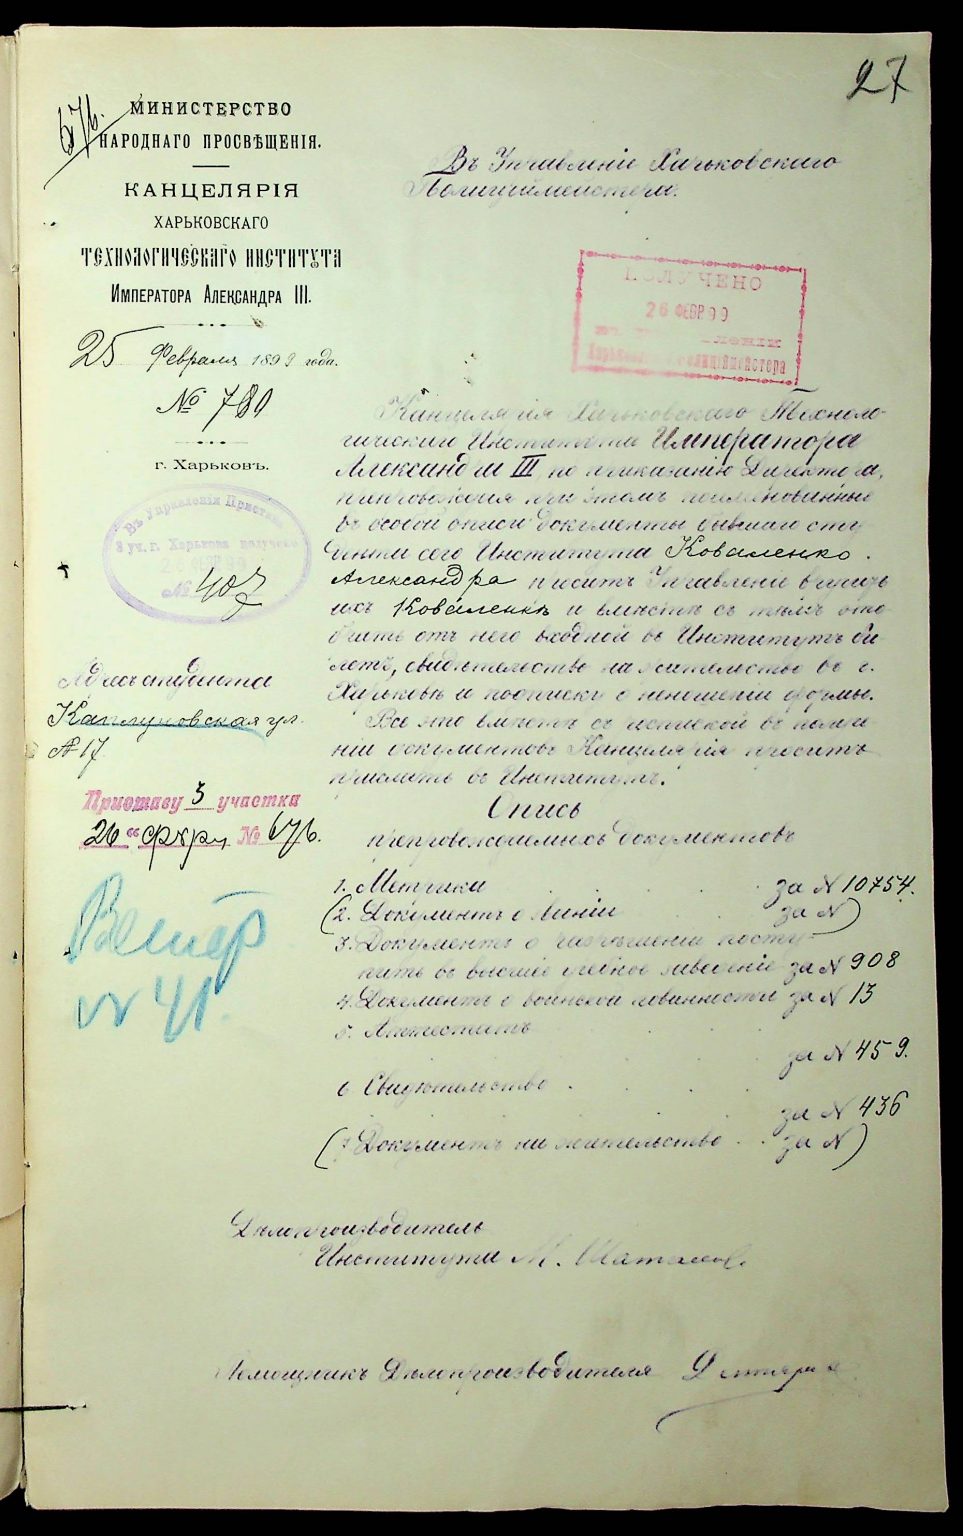 27
676.
МИНИСТЕРСТВО
НАРОДНАГО ПРОСВѢЩЕНІЯ.
КАНЦЕЛЯРІЯ
ХАРЬКОВСКАГО
ТЕХНОЛОГИЧЕСКАГО ИНСТИТУТА
ИМПЕРАТОРА АЛЕКСАНДРА III.
25 Февраля 1899 года.
№ 780
г. Харьковъ.
Въ Управленіе Харьковскаго
Полиціймейстера.
ПОЛУЧЕНО
26 ФЕВР 99
Харьковск полиціймейстора
Канцелярія Харьковскаго Техноло-
гическаго Института Императора
Александра III, по приказанію Директора,
препровождая при этомъ поименованные
въ особой описи документы бывшаго сту
дента сего Института Коваленко
Александра проситъ Управленіе выдать
ихъ Коваленкѣ и вмѣстѣ съ тѣмъ ото
брать отъ него входной въ Институтъ би
летъ, свидѣтельство на жительство въ г.
Харьковѣ и подписку о неношеніи формы.
Все это вмѣстѣ съ роспиской въ получе
ніи документовъ Канцелярія проситъ
прислать въ Институтъ.
Въ Управленіи Пристава
3 уч. г. Харькова получено
26 ФЕВ 99
№ 407
Адресъ студента
Каплуновская ул.
№ 17.
Приставу 3 участка
26 " февр. № 676.
Опись
препровождаемыхъ документовъ
1. Метрика за № 10754.
(2. Документъ о званіи за № )
3. Документъ о разрѣшеніи посту-
пить въ высшее учебное заведеніе за № 908
4. Документъ о воинской повинности за № 13
5. Аттестатъ
за № 459.
6. Свидѣтельство
за № 436
(7. Документъ на жительство за № )
№ 41.
Дѣлопроизводитель
Института М.
Помощникъ Дѣлопроизводителя